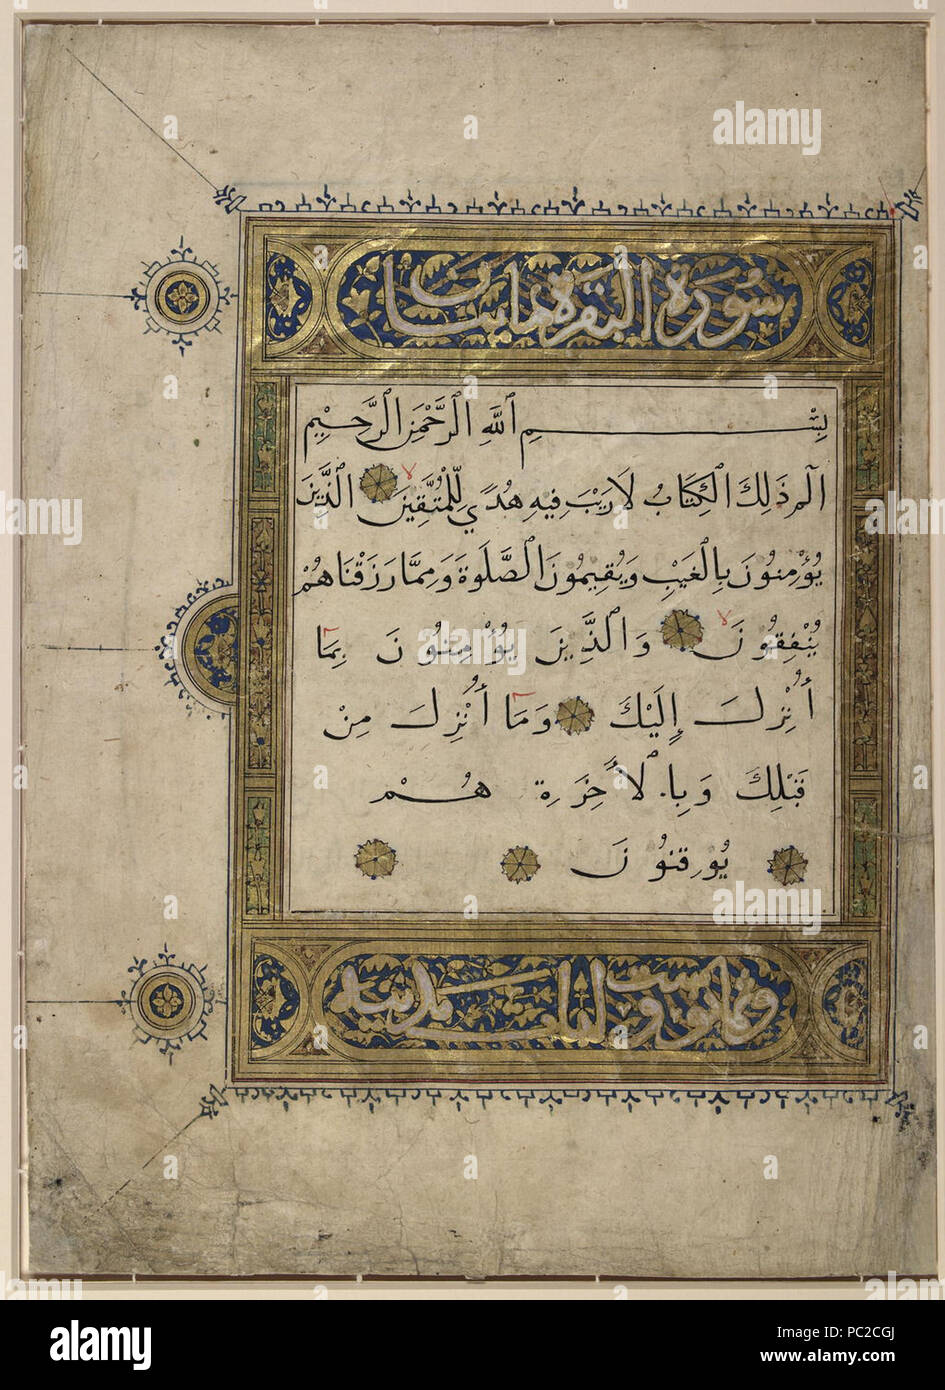 سورة البقرة مايتان
بِسْمِ ٱللَّهِ ٱلرَّحْمَنِ ٱلرَّحِيمِ
الٓمّ ذَلِكَ ٱلْكِتَابُ لَا رَيْبَ فِيهِ هُدًي لِّلْمُتَّقِينَ لا ٱلَّذِينَ
يُؤْمِنُونَ بِالْغَيْبِ وَيُقِيمُونَ ٱلصَّلَوةَ وَمِمَّا رَزَقْنَاهُمْ
يُنْفِقُونَ لا وَٱلَّذِينَ يُؤْمِنُونَ بِمَا
أُنْزِلَ إِلَيْكَ وَمَا أُنْزِلَ مِنْ
قَبْلِكَ وَبِالْأَخِرَةِ هُمْ
يُوقِنُونَ
وثمانون وست ايات مدنيه
alamy
alamy
Image ID: PC2CGJ
www.alamy.com